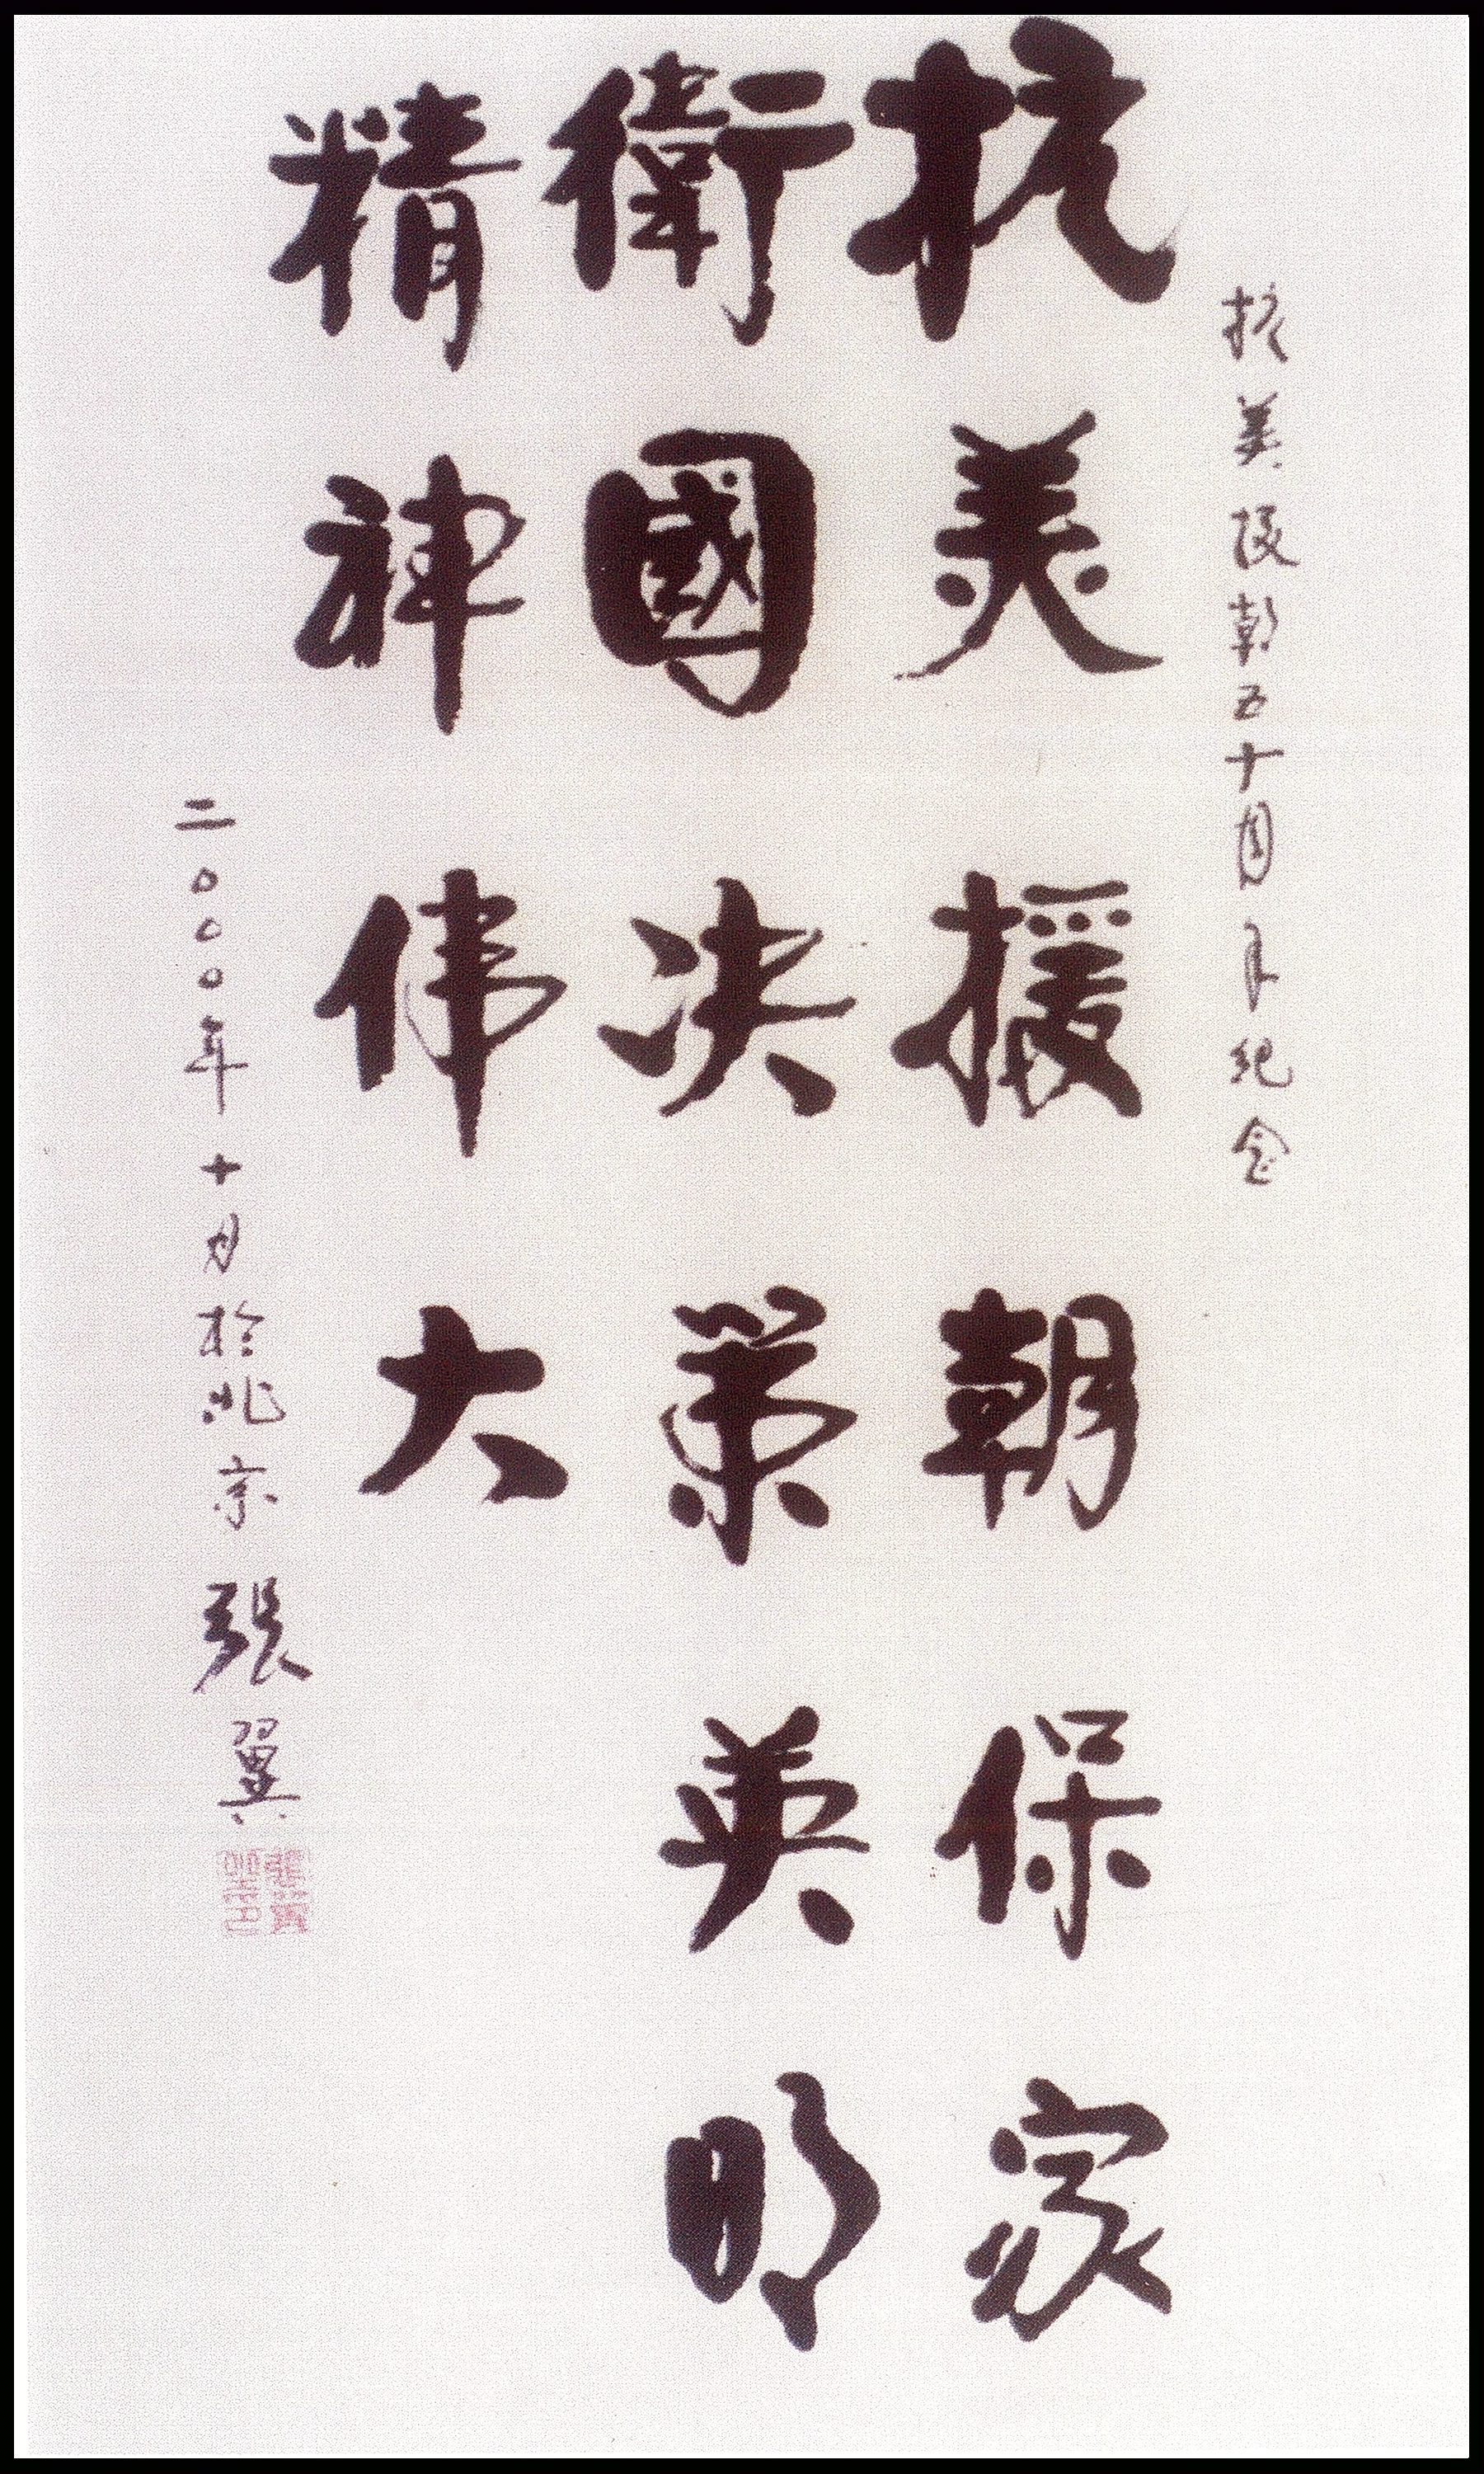 抗美援朝五十周年纪念
抗美援朝保家
衛國决策英明
精神伟大
二000年十月於北京 張翼